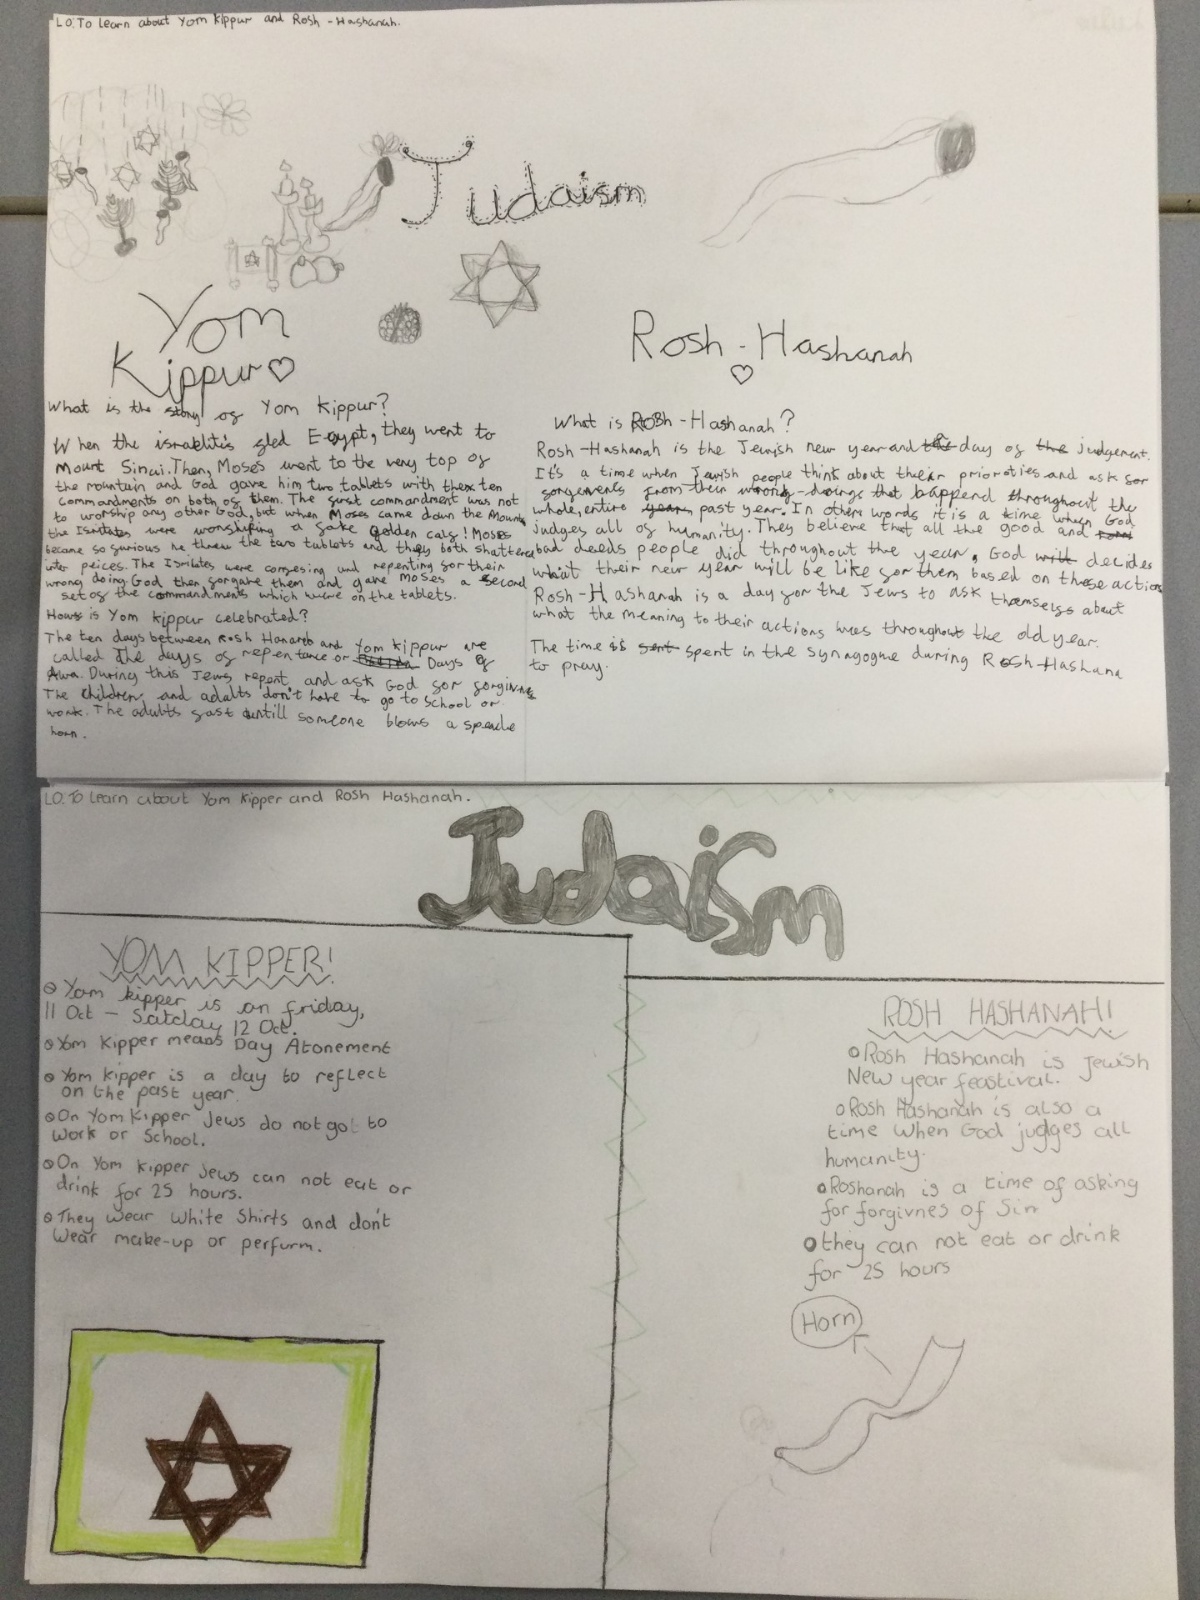 LO. To learn about Yom Kippur and Rosh - Hashanah.
Judaism
Yom
Kippur
What is the story of Yom Kippur?
When the israelitis fled Egypt, they went to
Mount Sinai. Then, Moses went to the very top of
the mountain and God gave him two tablets with the ten
commandments on both of them. The first commandment was not
to worship any other God, but when Moses came down the Mount
the Isrilates were worshiping a fake golden calf! Moses
became so furious he threw the two tablots and they both shattered
into peices. The Isrilates were confesing and repenting for their
wrong doing. God then forgave them and gave Moses a second
set of the commandments which were on the tablets.
How is Yom kippur celebrated?
The ten days between Rosh Hanareb and Yom kippur are
called The days of repentance or Days of
Awa. During this Jews repent and ask God for forgivnes
The children and adults don't have to go to School or
work. The adults fast untill someone blows a speacle
horn.
Rosh - Hashanah
What is Rosh - Hashanah?
Rosh - Hashanah is the Jewish new year and the day of the judgement.
It's a time when Jewish people think about theair prioroties and ask for
forgevents from their wrong-doings that bappend throughout the
whole, entire year past year. In others words it is a time when God
judges all of humanity. They believe that all the good and
bad deeds people did throughout the year, God will decides
what their new year will be like for them based on those actions
Rosh - Hashanah is a day for the Jews to ask themselfs about
what the meaning to their actions was throughout the old year.
The time is sent spent in the synagogue during Rosh-Hashana
to pray.
LO. To learn about Yom Kipper and Rosh Hashanah.
Judaism
YOM KIPPER!
Yom kipper is on friday,
11 Oct - Satday 12 Oct.
Yom Kipper means Day Atonement
Yom Kipper is a day to reflect
on the past year.
On Yom Kipper Jews do not go to
work or School.
On Yom Kipper Jews can not eat or
drink for 25 hours.
They wear white Shirts and don't
wear make-up or perfurm.
ROSH HASHANAH!
Rosh Hashanah is Jewish
New year feastival.
Rosh Hashanah is also a
time when God judges all
humanity.
Roshanah is a time of asking
for forgivnes of Sin
they can not eat or drink
for 25 hours
Horn